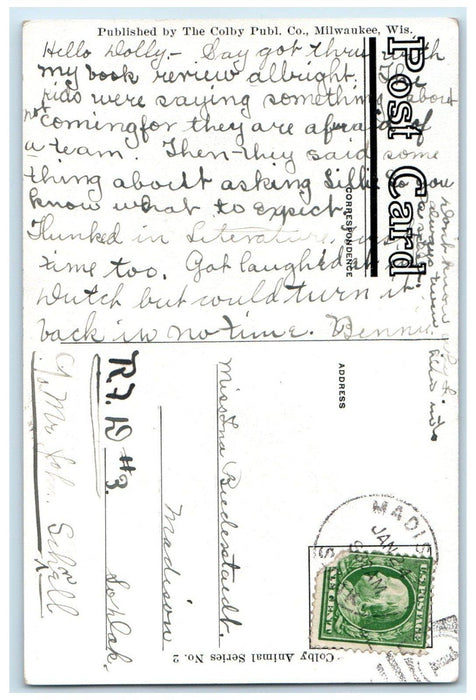 Published by The Colby Publ. Co., Milwaukee, Wis.
Post Card.
CORRESPONDENCE
Hello Dolly – Say got thru with
my book review allright. The
kids were saying something about
not coming for they are afraid of
a team. Then they said some
thing about asking Lillie so you
know what to expect
Flunked in Literature
time too. Got laughed
Dutch but could turn it
back in no time. Bennie
Don't know
ADDRESS
Miss Ina Buderstadt.
Madison
R.F.D #3. So. Dak.
c/o Mr. John Schell
MADIS
JAN
S
U.S. POSTAGE
1 CENT 1
Colby Animal Series No. 2